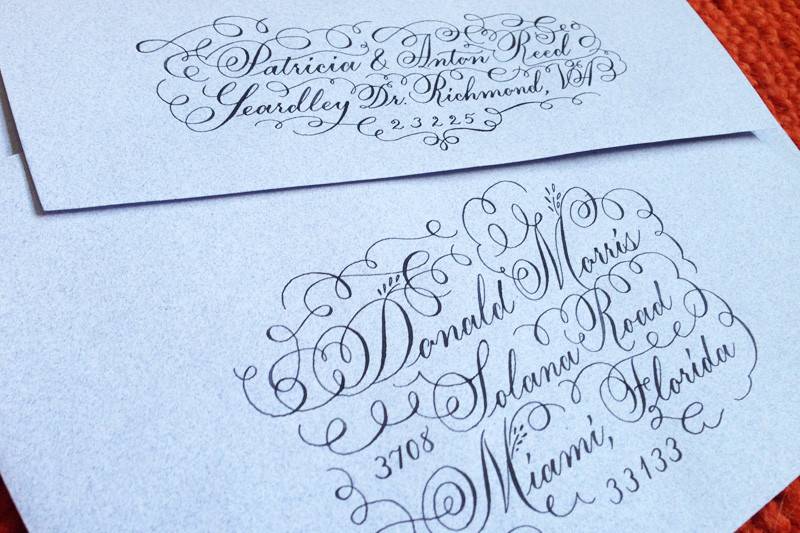 Patricia & Anton Reed
Yeardley Dr. Richmond, VA
23225
Donald Morris
3708 Solana Road
Miami, Florida
33133